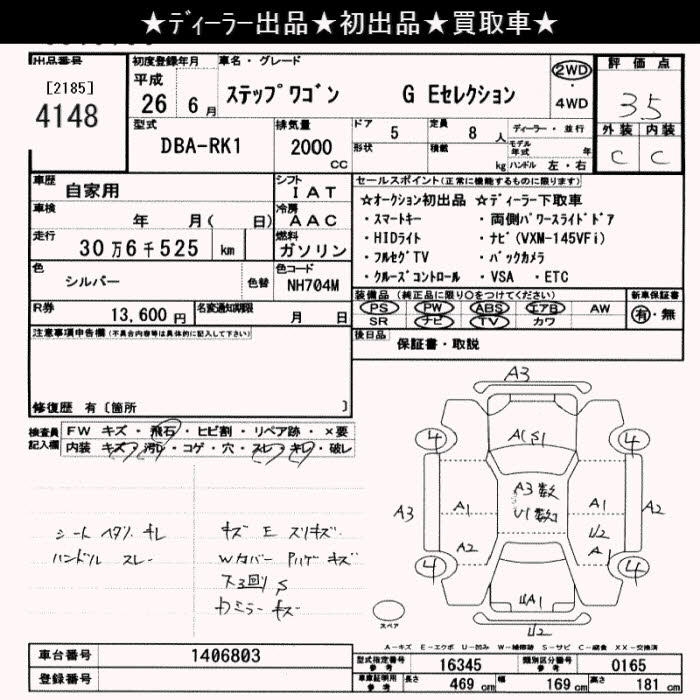 ★ﾃﾞｨｰﾗｰ出品★初出品★買取車★
出品番号
[2185]
4148
初度登録年月
平成
26 6 月
車名・グレード
ｽﾃｯﾌﾟﾜｺﾞﾝ G Eｾﾚｸｼｮﾝ
2WD
・
4WD
評価点
3.5
外装 内装
C C
型式
DBA-RK1
排気量
2000
CC
ドア 5
定員 8 人
ディーラー・並行
形状
積載 kg
モデル年式 年
ハンドル 左・右
車歴 自家用
シフト IAT
車検 年 月( 日)
冷房 AAC
走行 30 万 6 千 525 km
燃料 ガソリン
色 シルバー
色替
色コード NH704M
R券 13,600 円
名変通知期限 月 日
セールスポイント(正常に機能するものに限ります)
☆オークション初出品 ☆ディーラー下取車
・スマートキー ・両側ﾊﾟﾜｰｽﾗｲﾄﾞﾄﾞｱ
・HIDライト ・ナビ(VXM-145VFi)
・フルセグTV ・バックカメラ
・ｸﾙｰｽﾞｺﾝﾄﾛｰﾙ ・VSA ・ETC
装備品 (純正品に限り○をつけてください)
PS PW ABS エアB AW
SR ナビ TV カワ
新車保証書
有・無
後日品 保証書・取説
注意事項申告欄(不具合内容等は具体的に記入して下さい)
修復歴 有〔箇所 〕
検査員
記入欄
FW キズ・飛石・ヒビ割・リペア跡・×要
内装 キズ・汚レ・コゲ・穴・スレ・キレ・破レ
シート ヘタリ キレ
ハンドル スレ
キズ E スリキズ
Wカバー Pハゲ キズ
下3回り S
カミラー キズ
A3
A(S1
4
4
A3数
U1数
A3
A1
A1
A2
A2
U2
A1
4
4
UA1
U2
スペア
A-キズ E-エクボ U-凹み W-補修跡 S-サビ C-腐食 XX-交換済
車台番号 1406803
登録番号
型式指定番号
参考
16345
類別区分番号
参考
0165
車庫証明用
参考
長さ 469 cm
幅 169 cm
高さ 181 cm